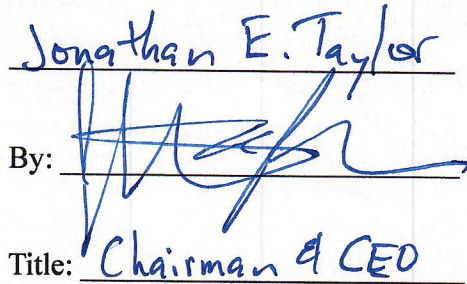 Jonathan E. Taylor
By:
Title: Chairman & CEO